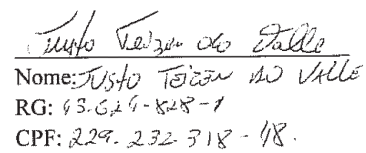 Justo Teizen do Valle
Nome: JUSTO TEIZEN DO VALLE
RG: 43.629-828-1
CPF: 229.232.318-48.